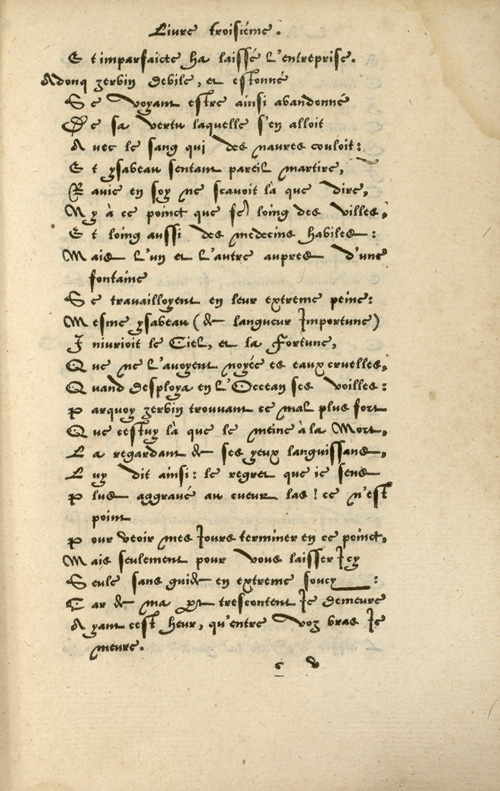 Livre troisiéme.
Et imparfaicte ha laissé l'entreprise.
Adonq zerbin debile, et estonné
Se voyant estre ainsi abandonné
De sa vertu laquelle s'en alloit
Avec le sang qui des navres couloit:
Et ysabeau sentant pareil martire,
Ravie en soy ne scavoit là que dire,
Ny à ce poinct que loing des villes,
Et loing aussi des medecins habiles:
Mais l'un et l'autre aupres d'une
fontaine
Se travailloyent en leur extreme peine:
Mesme ysabeau (de langueur Importune)
Iniurioit le Ciel, et la Fortune,
Que ne l'avoyent noyée es eaux cruelles,
Quand desploya en l'Occean ses voilles:
Parquoy zerbin trouvant ce mal plus fort
Que cestuy là que le meine à la Mort,
La regardant de ses yeux languissans,
Luy dit ainsi: le regret que ie sens
Plus aggravé au cueur las! ce n'est
point
Pour veoir mes Iours terminer en ce poinct,
Mais seulement pour vous laisser Icy
Seule sans guide en extreme soucy:
Car de ma part trescontent Ie demeure
Ayant cest heur, qu'entre voz bras Ie
meure.